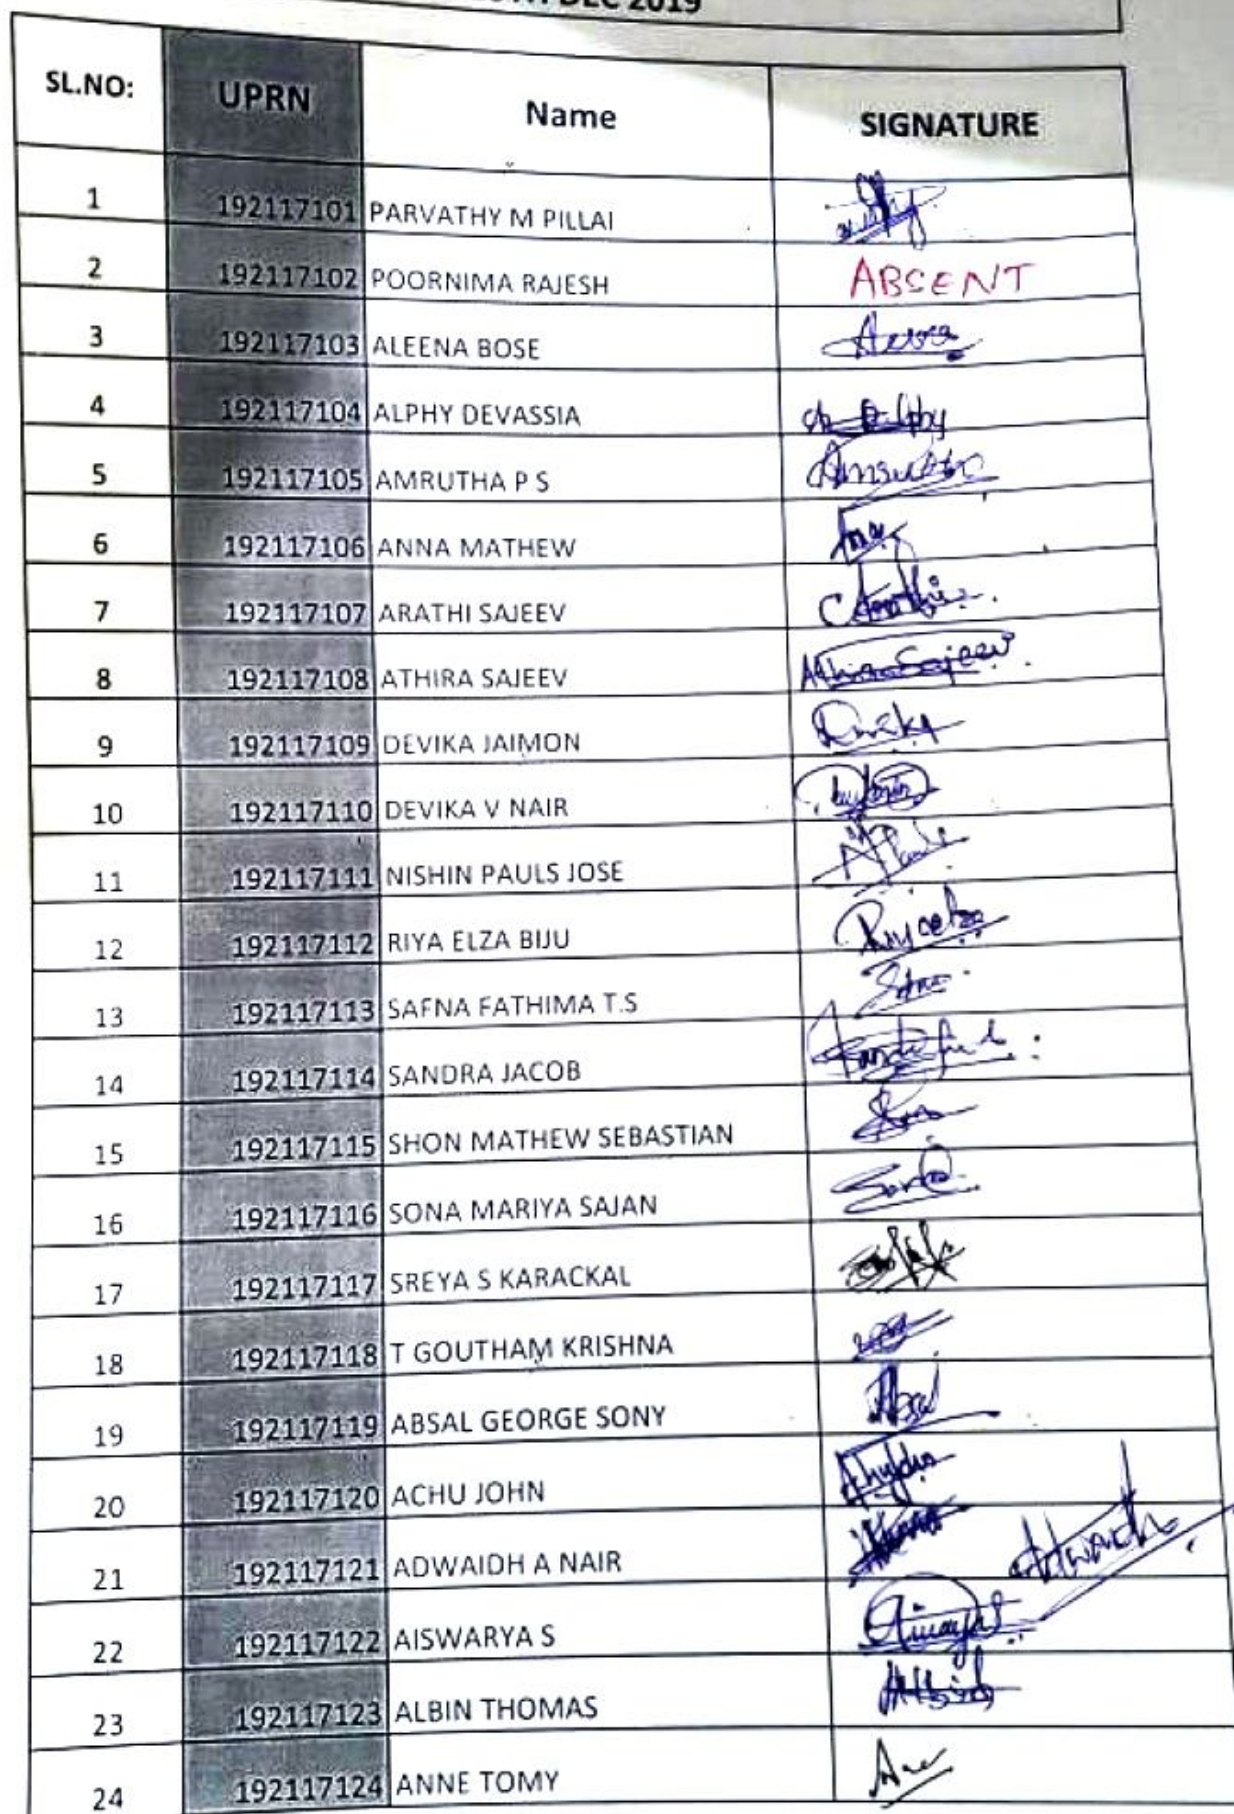 DEC 2019
SL.NO: UPRN Name SIGNATURE
1 192117101 PARVATHY M PILLAI
2 192117102 POORNIMA RAJESH ABSENT
3 192117103 ALEENA BOSE
4 192117104 ALPHY DEVASSIA
5 192117105 AMRUTHA P S
6 192117106 ANNA MATHEW
7 192117107 ARATHI SAJEEV
8 192117108 ATHIRA SAJEEV Athira Sajeev
9 192117109 DEVIKA JAIMON
10 192117110 DEVIKA V NAIR
11 192117111 NISHIN PAULS JOSE
12 192117112 RIYA ELZA BIJU
13 192117113 SAFNA FATHIMA T.S
14 192117114 SANDRA JACOB
15 192117115 SHON MATHEW SEBASTIAN
16 192117116 SONA MARIYA SAJAN
17 192117117 SREYA S KARACKAL
18 192117118 T GOUTHAM KRISHNA
19 192117119 ABSAL GEORGE SONY Absal
20 192117120 ACHU JOHN
21 192117121 ADWAIDH A NAIR
22 192117122 AISWARYA S
23 192117123 ALBIN THOMAS
24 192117124 ANNE TOMY